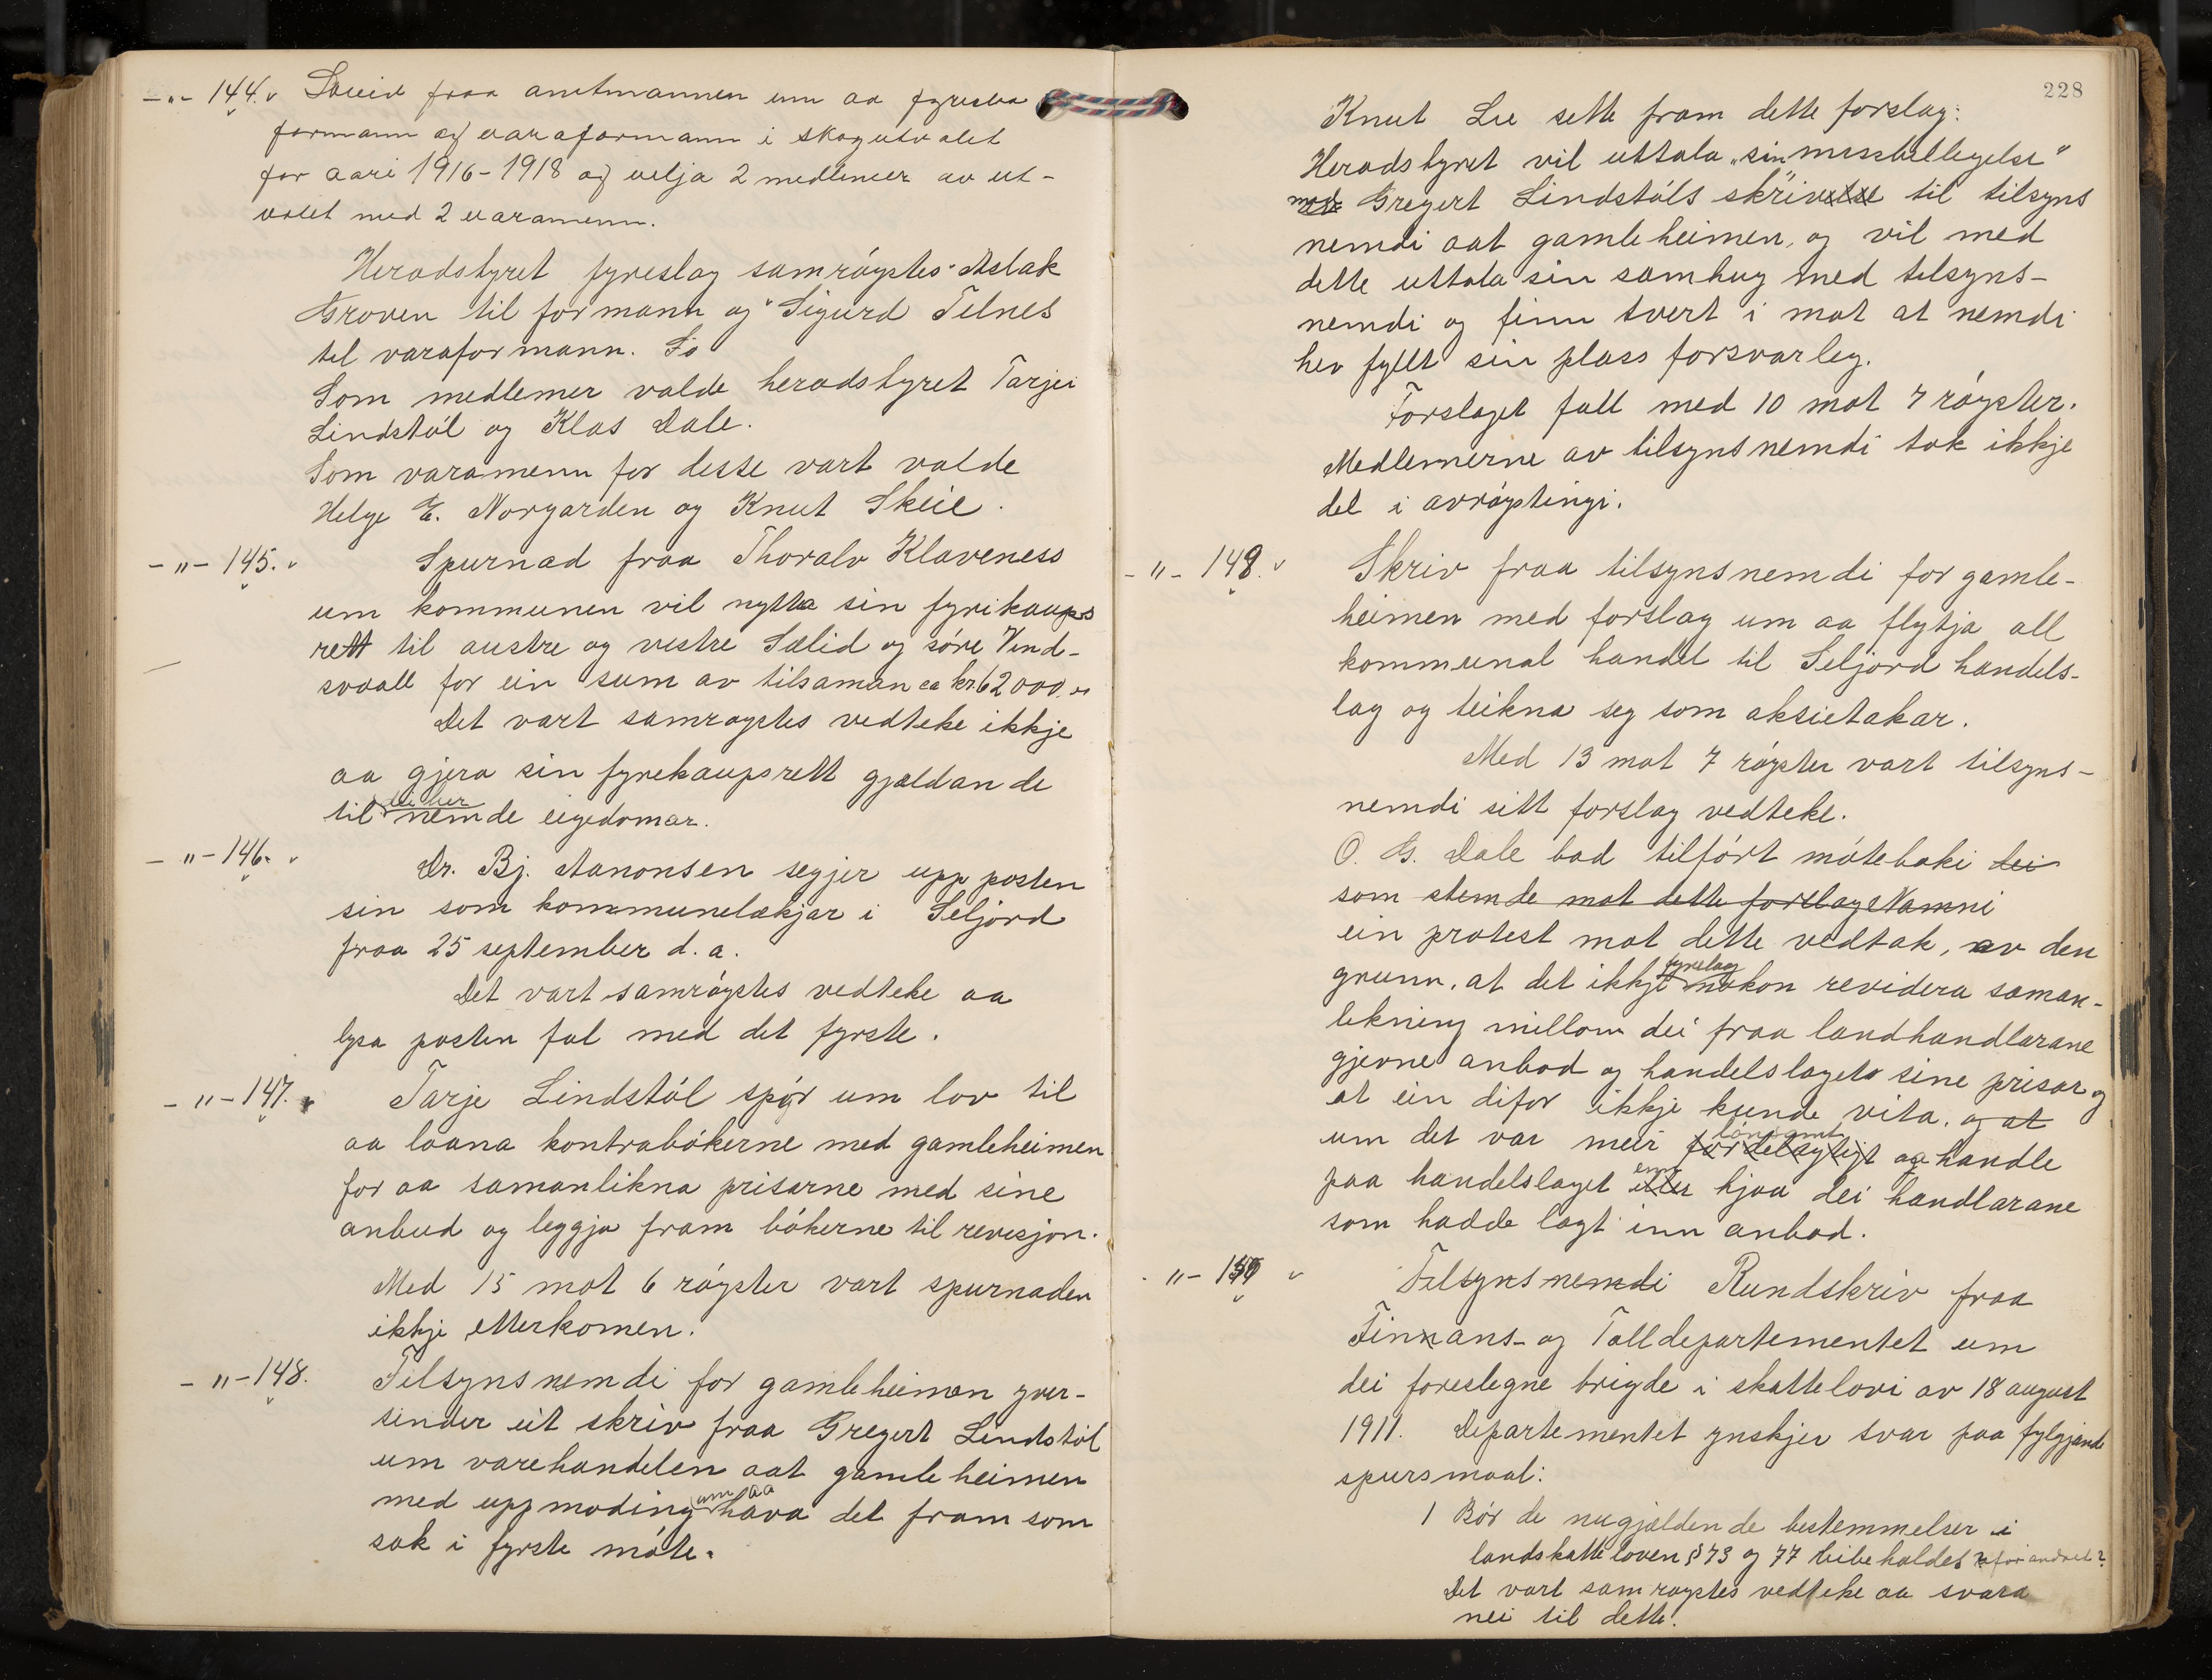 -"- 144. v Skriv fraa amtmannen um aa fyreslaa
formann og varaformann i skogutvalet
for aari 1916-1918 og velja 2 medlemer av ut-
valet med 2 varamenn.
Heradstyret fyreslog samrøystes Aslak
Groven til formann og Sigurd Telnes
til varaformann. So
Som medlemer valde heradstyret Tarjei
Lindstøl og Klas Dale.
Som varamenn for desse vart valde
Helge E. Norgarden og Knut Skeie.
-"- 145. v Spurnad fraa Thoralv Klaveness
um kommunen vil nytta sin fyrikaups
rett til austre og vestre Sælid og søre Vind-
svaall for ein sum av tilsaman ca kr 62 000,00
Det vart samrøystes vedteke ikkje
aa gjera sin fyrekaupsrett gjeldande
til nemde eigedomar.
-"- 146. v Dr. Bj. Aanonsen segjer upp posten
sin som kommunelækjar i Seljord
fraa 25 september d.a.
Det vart samrøystes vedteke aa
lysa posten fal med det fyrste.
-"- 147. Tarje Lindstøl spør um lov til
aa laana kontrabøkerne med gamleheimen
for aa samanlikna prisarne med sine
anbud og leggja fram bøkerne til revisjon.
Med 15 mot 6 røyster vart spurnaden
ikkje etterkomen.
-"- 148. Tilsynsnemdi for gamleheimen yver-
sender eit skriv fraa Gregert Lindstøl
um varehandelen aat gamleheimen
med uppmoding um aa hava det fram som
sak i fyrste møte.
228
Knut Lie sette fram dette forslag:
Heradstyret vil uttala "sin missbillegelse"
med Gregert Lindstøls skrivelse til tilsyns
nemdi aat gamleheimen, og vil med
dette uttala sin samhug med tilsyns-
nemdi og finn tvert i mot at nemdi
hev fyllt sin plass forsvarleg.
Forslaget fall med 10 mot 7 røyster.
Medlemerne av tilsynsnemdi tok ikkje
del i avrøystingi.
-"- 149. v Skriv fraa tilsynsnemdi for gamle-
heimen med forslag um aa flytja all
kommunal handel til Seljord handels-
lag og teikna seg som aksietakar.
Med 13 mot 7 røyster vart tilsyns-
nemdi sitt forslag vedteke.
O. G. Dale bad tilført møteboki dei
som stemde mot dette forslag Namni
ein protest mot dette vedtak, av den
grunn, at det ikkje fyrelag nokon revidera saman-
likning millom dei fraa landhandlarane
gjevne anbod og handelslagets sine prisar og
at ein difor ikkje kunde vita, og at
um det var meir lønsamt fordelagtigt aa handle
paa handelslaget enn eller hjaa dei handlarane
som hadde lagt inn anbod.
-"- 150 v Tilsynsnemdi Rundskriv fraa
Finnans- og Tolldepartementet um
dei foreslegne brigde i skattelovi av 18 august
1911. Departementet ynskjer svar paa fylgjande
spursmaal:
1 Bør de nugjældende bestemmelser i
landskatteloven § 73 og 77 bibeholdes uforandret?
Det vart samrøystes vedteke aa svara
nei til dette.